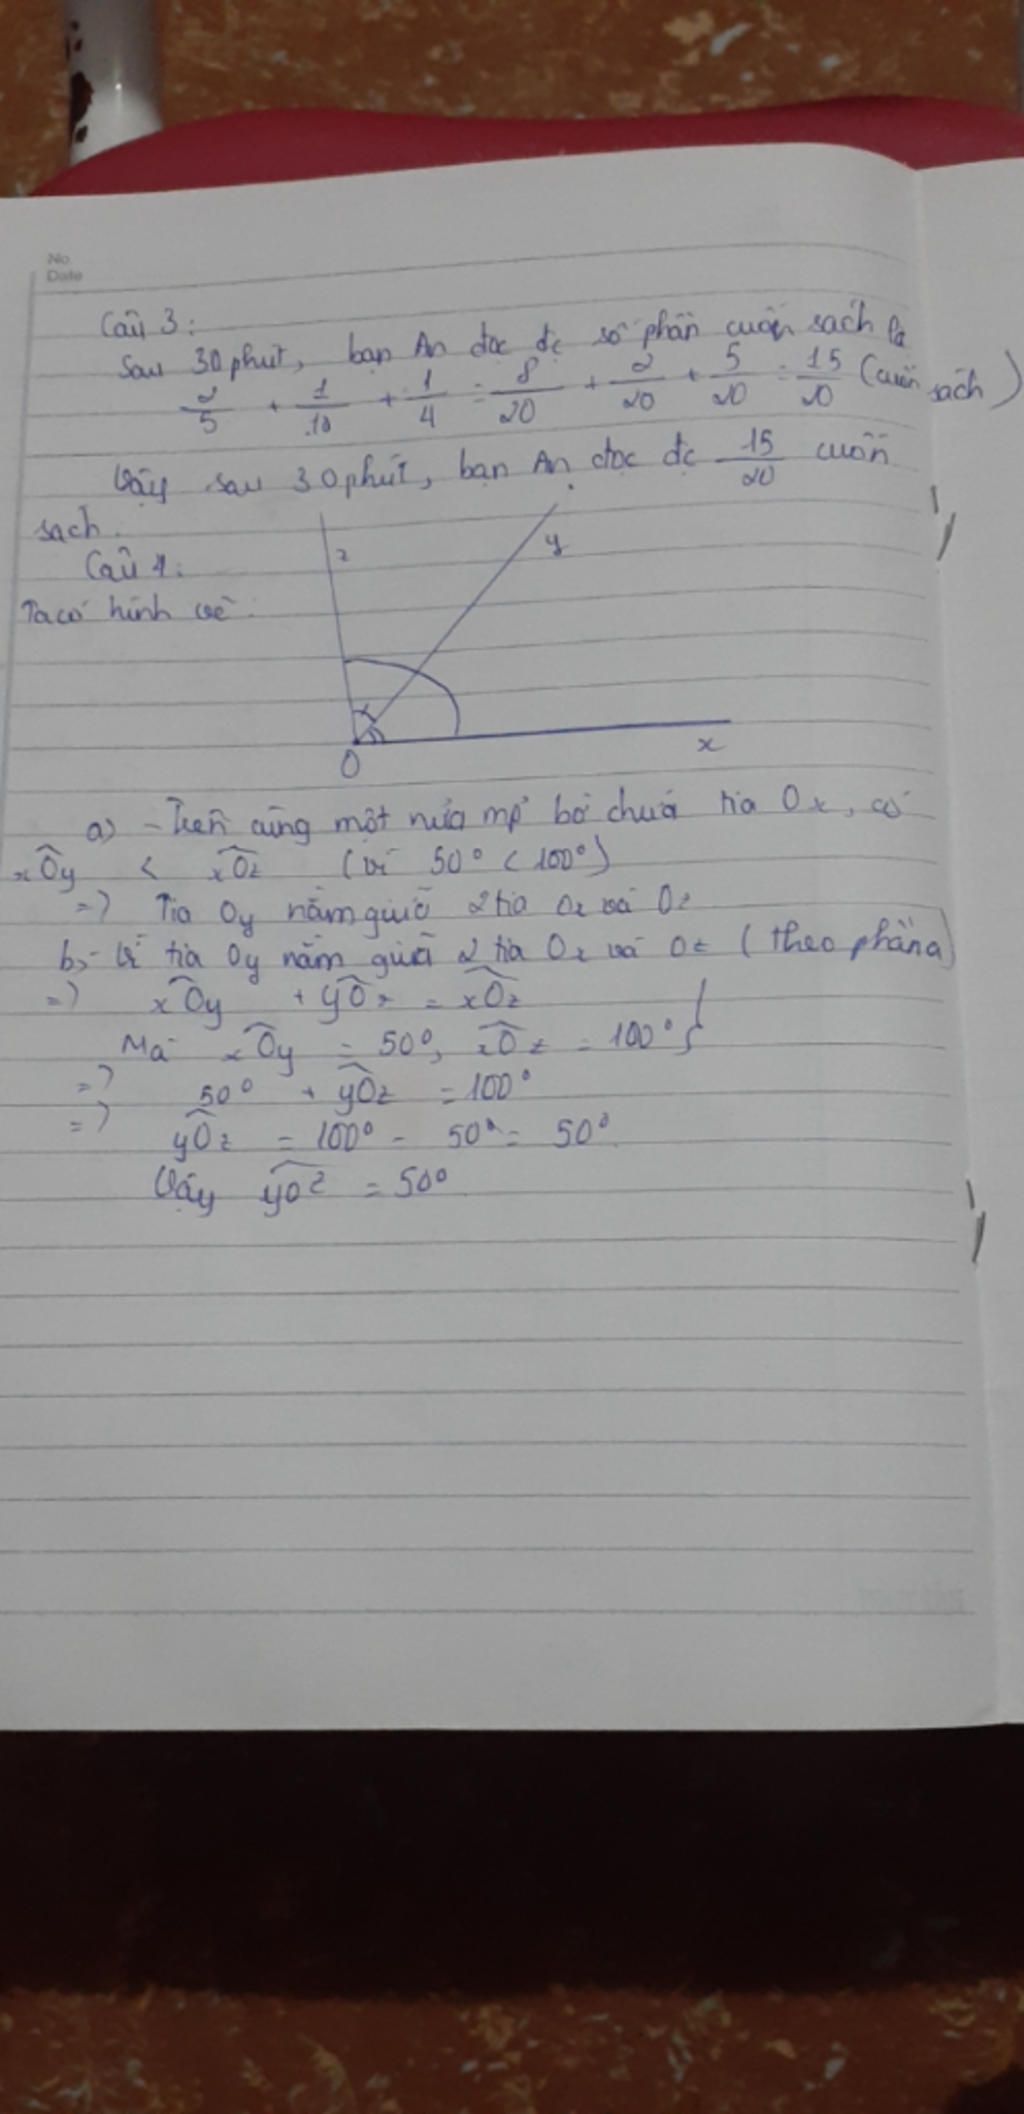 No.
Date
Câu 3:
Sau 30 phút, bạn An đọc đc số phần cuốn sách là
2/5 + 1/10 + 1/4 = 8/20 + 2/20 + 5/20 = 15/20 (cuốn sách)
Vậy sau 30 phút, bạn An đọc đc 15/20 cuốn
sách.
Câu 4:
Ta có hình vẽ:
z
y
x
O
a) - Trên cùng một nửa mp bờ chứa tia Ox, có
xÔy < xÔz (vì 50° < 100°)
=> Tia Oy nằm giữa 2 tia Ox và Oz
b, - Vì tia Oy nằm giữa 2 tia Ox và Oz (theo phần a)
=> xÔy + yÔz = xÔz
Mà xÔy = 50°, xÔz = 100° }
=> 50° + yÔz = 100°
=> yÔz = 100° - 50° = 50°
Vậy yÔz = 50°